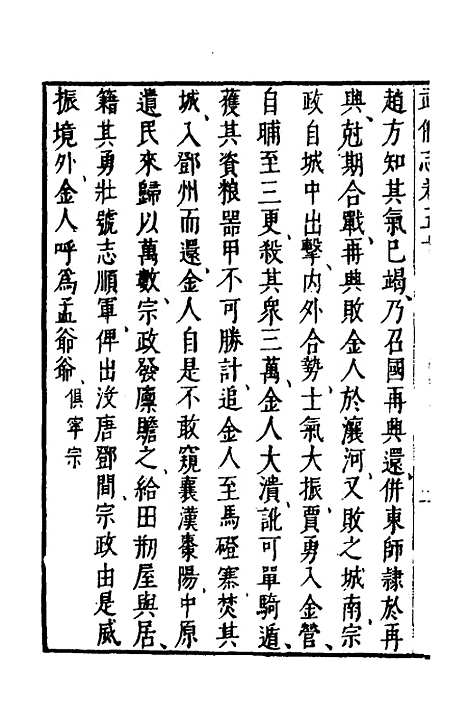 武備志卷五十
趙方知其氣已竭、乃召國再興還、併東師隸於再
興、尅期合戰、再興敗金人於瀼河、又敗之城南、宗
政自城中出擊、内外合勢、士氣大振、賈勇入金營、
自晡至三更、殺其衆三萬、金人大潰、訛可單騎遁、
獲其資粮器甲不可勝計、追金人至馬磴寨、焚其
城、入鄧州而還、金人自是不敢窺襄漢棗陽、中原
遺民來歸以萬數、宗政發廩贍之、給田剏屋與居、
籍其勇壯號忠順軍、俾出沒唐鄧間、宗政由是威
振境外、金人呼爲孟爺爺、俱寧宗